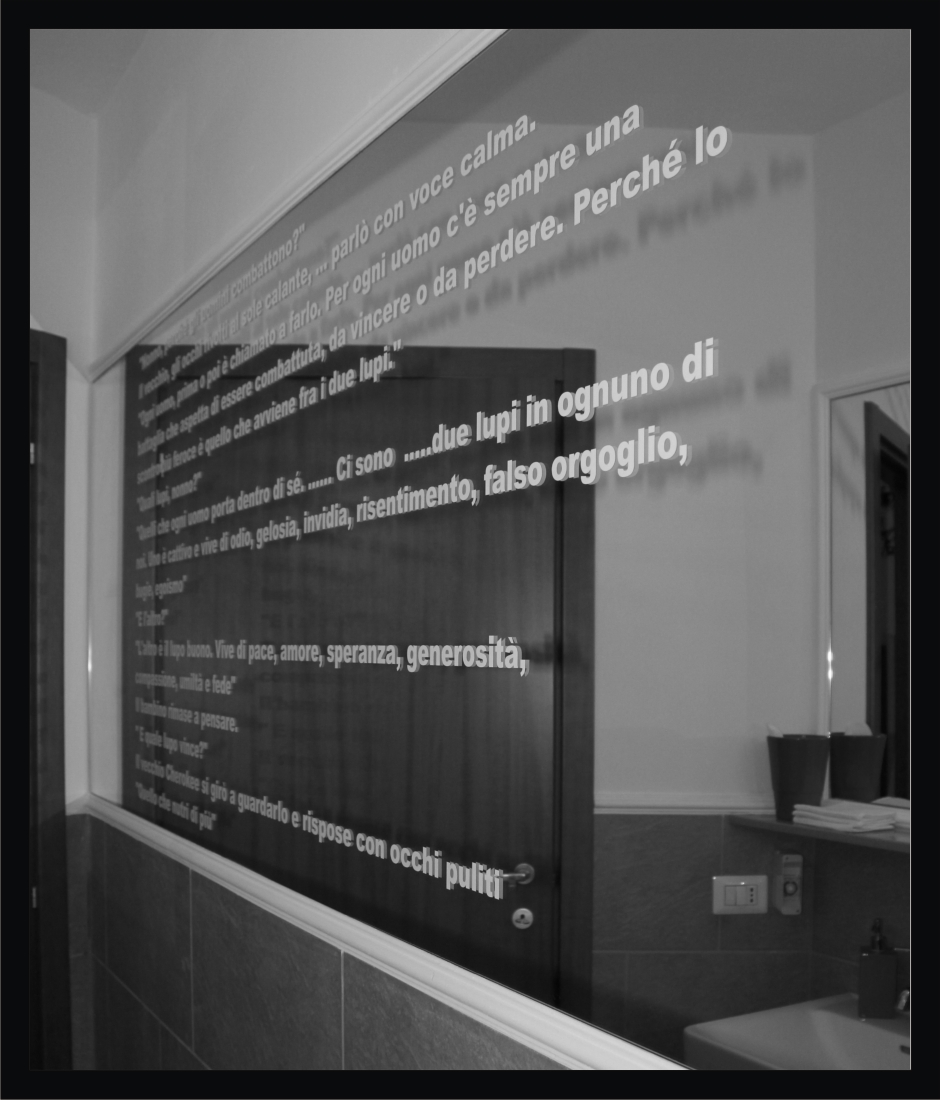 "Nonno, perché gli uomini combattono?"
Il vecchio, gli occhi rivolti al sole calante, ... parlò con voce calma.
"Ogni uomo, prima o poi è chiamato a farlo. Per ogni uomo c'è sempre una
battaglia che aspetta di essere combattuta, da vincere o da perdere. Perché lo
scontro più feroce è quello che avviene fra i due lupi."
"Quali lupi, nonno?"
"Quelli che ogni uomo porta dentro di sé. ...... Ci sono .....due lupi in ognuno di
noi. Uno è cattivo e vive di odio, gelosia, invidia, risentimento, falso orgoglio,
bugie, egoismo"
"E l'altro?"
"L'altro è il lupo buono. Vive di pace, amore, speranza, generosità,
compassione, umiltà e fede"
Il bambino rimase a pensare.
"E quale lupo vince?"
Il vecchio Cherokee si girò a guardarlo e rispose con occhi puliti
"Quello che nutri di più"